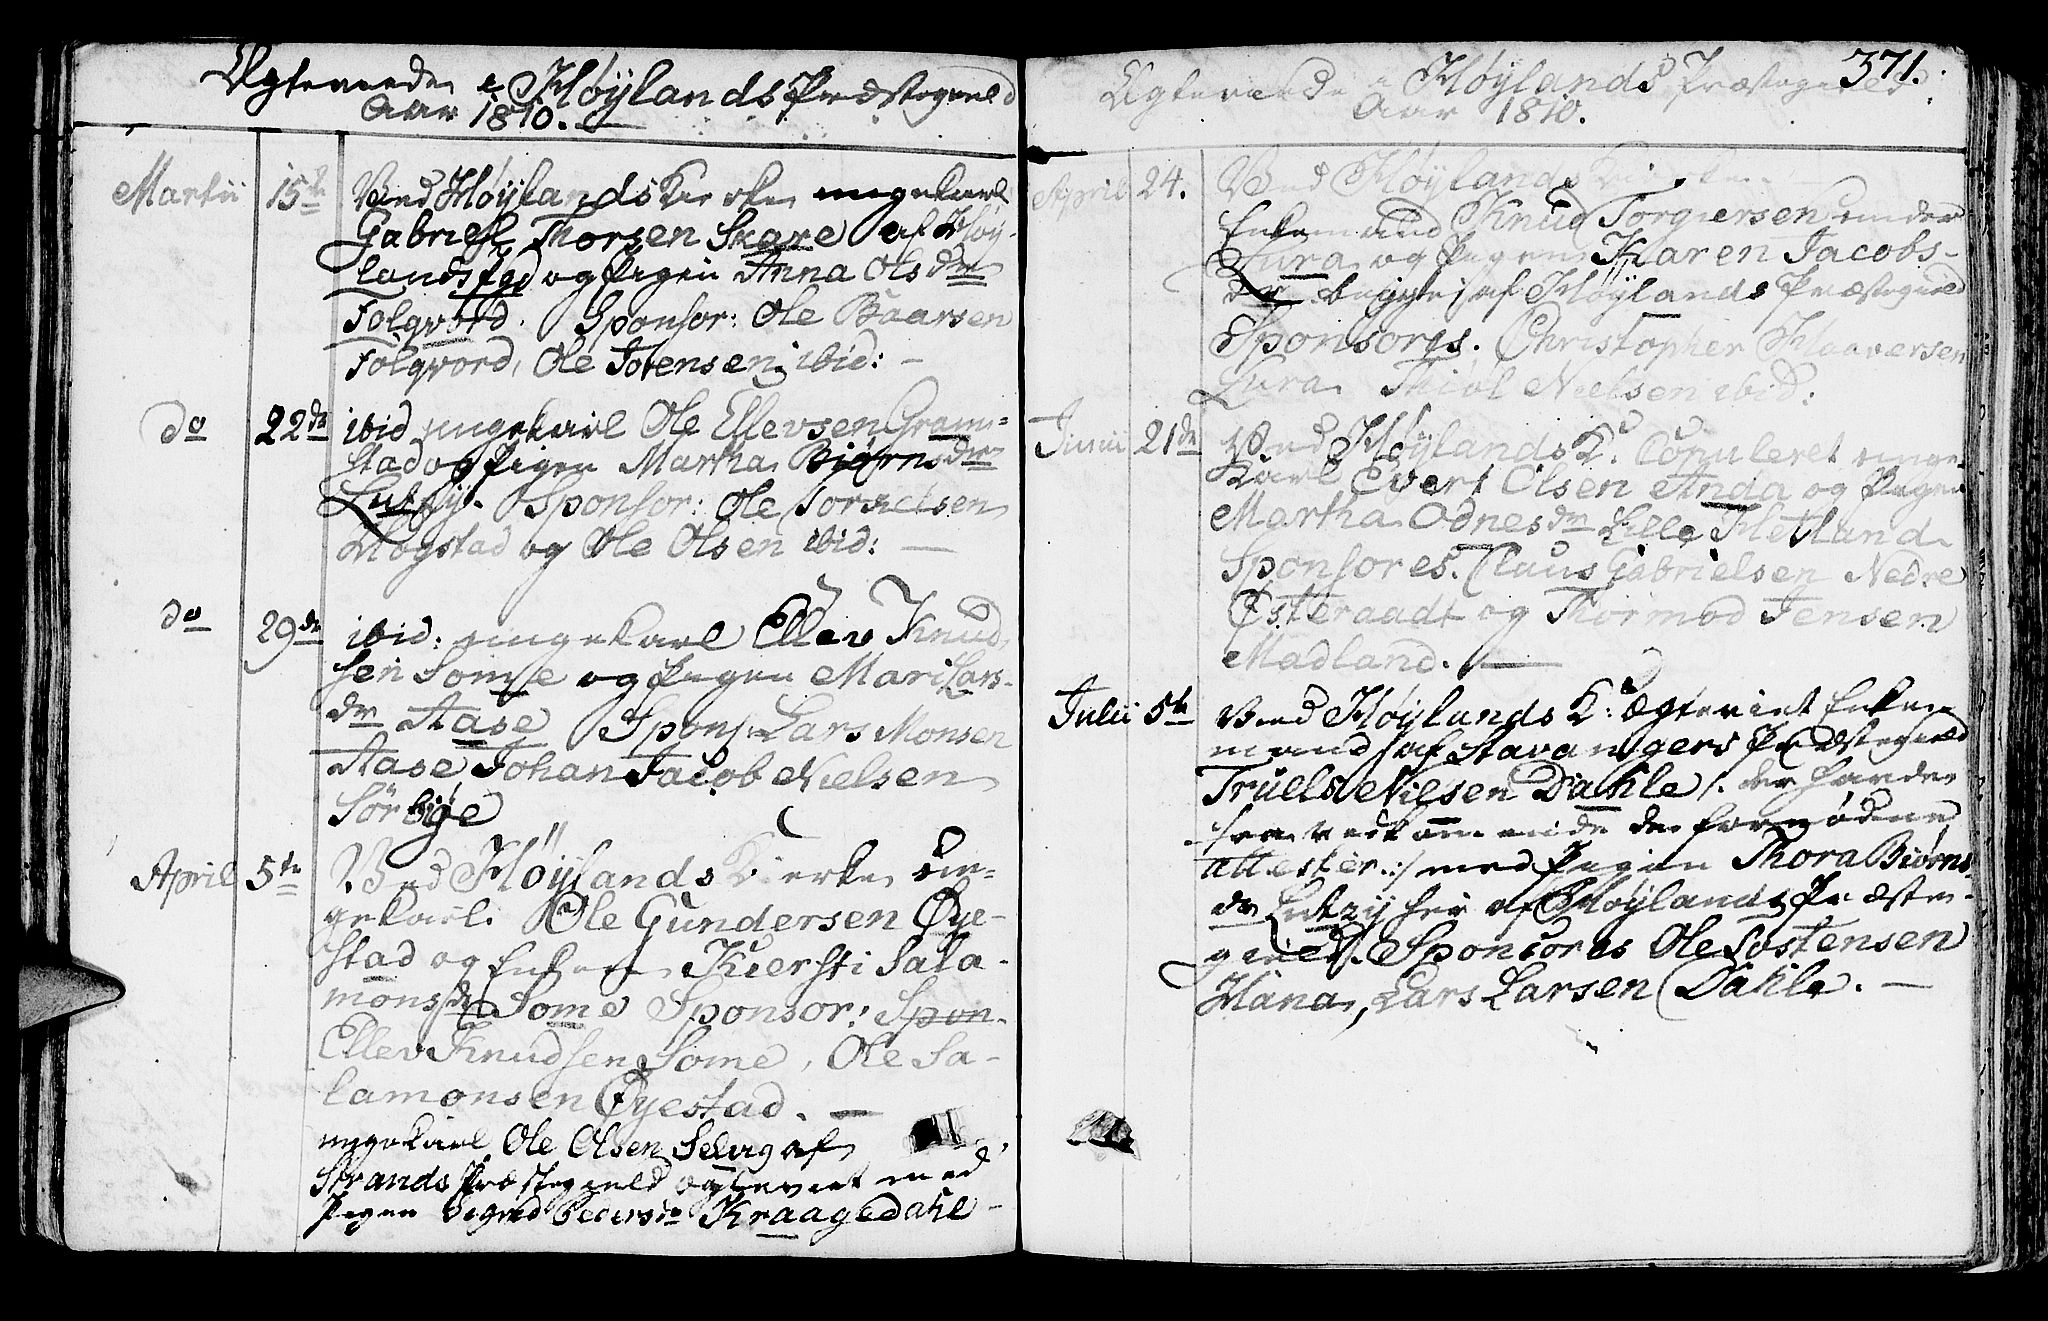 Ægteviede i Høylands Præstegield
Aar 1810.
Martii 15de Ved Høylands Kirke ungekarl
Gabriel Thorsen Skare af Høy-
landsfgd og Pigen Anna Olsdr
Folqvord. Sponsor: Ole Baarsen
Folqvord, Ole Torensen ibid:
do 22de ibid ungekarl Ole Ellevsen Gram-
stad og Pigen Martha Biørnsdr
Lutsy. Sponsor: Ole
Hogstad og Ole Olsen ibid:
do 29de ibid: ungekarl Ellev Knud
sen Somme og Pigen Mari Lars-
dr Aase Spons: Lars Monsen
Aase Johan Jacob Nielsen
Sørbye
April 5te Ved Høylands Kierke un-
gekarl Ole Gundersen Øye-
stad og Enken Kiersti Sala-
monsdr Some Sponsor: Spon-
Ellev Knudsen Some, Ole Sa-
lamonsen Øyestad.
ungekarl Ole Olsen Selvig af
Strands Præstegield egteviet med
Pigen Sigrid Pedersdr Kraagedahl
371.
Ægteviede i Høylands Præstegield
Aar 1810.
April 24. Ved Høylands Kirke
Enkemand Knud Torgiersen
Lura og Pigen Karen Jacobs-
dr begge af Høylands Præstegield
Sponsores. Christopher Haaversen
Lura Thiøl Nielsen ibid:
Junii 21de Ved Høylands K: Copuleret unge-
karl Evert Olsen Anda og Pigen
Martha Odnesdr Lille Hetland
Sponsores. Claus Gabrielsen Nedre
Østeraadt og Thormod Jensen
Madland.
Julii 5te Ved Høylands K: Ægteviet Enke-
mand af Stavangers Præstegield
Truels Nilsen Dahle /: der havde
fra vedkommende de fornødne
attester :/ med Pigen Thora Biørns
dr Lutzy her af Høylands Præste-
gield. Sponsores Ole Tostensen
Hana, Lars Larsen Dahle.